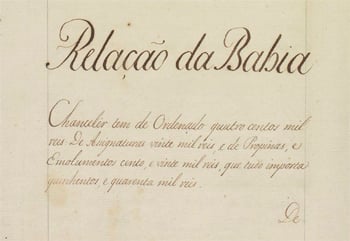 Relação da Bahia
Chancelér tem de Ordenado quatro centos mil
reis. De Asignaturas vinte mil reis, e de Propinas, e
Emolumentos cento, e vinte mil reis. que tudo importa
quinhentos, e quarenta mil reis.
De